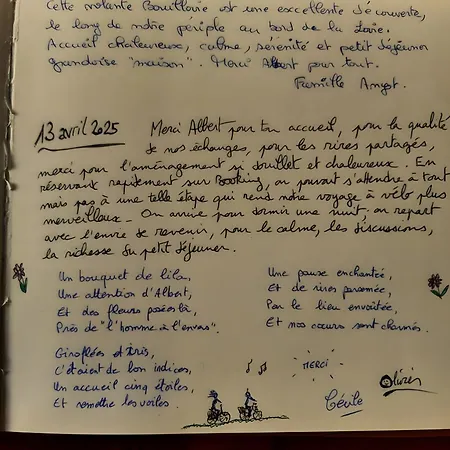 Cette volante Bouilloire est une excellente découverte,
le long de notre périple au bord de la Loire.
Accueil chaleureux, calme, sérénité et petit déjeuner
grandoise "maison". Merci Albert pour tout.
Famille Angst.
13 avril 2025
Merci Albert pour ton accueil, pour la qualité
de nos échanges, pour les rires partagés,
merci pour l'aménagement si douillet et chaleureux. En
réservant rapidement sur Booking, on pouvait s'attendre à tout
mais pas à une telle étape qui rend notre voyage à vélo plus
merveilleux. On arrive pour dormir une nuit, on repart
avec l'envie de revenir, pour le calme, les discussions,
la richesse du petit déjeuner.
Un bouquet de lila,
Une attention d'Albert,
Et des fleurs posées là,
Près de "l'homme à l'envers".
Giroflées et Iris,
C'étaient de bon indices,
Un accueil cinq étoiles,
Et remettre les voiles.
Une pause enchantée,
Et de rires parsemée,
Par le lieu envoûtée,
Et nos cœurs sont charmés.
MERCI
Cécile
Olivier